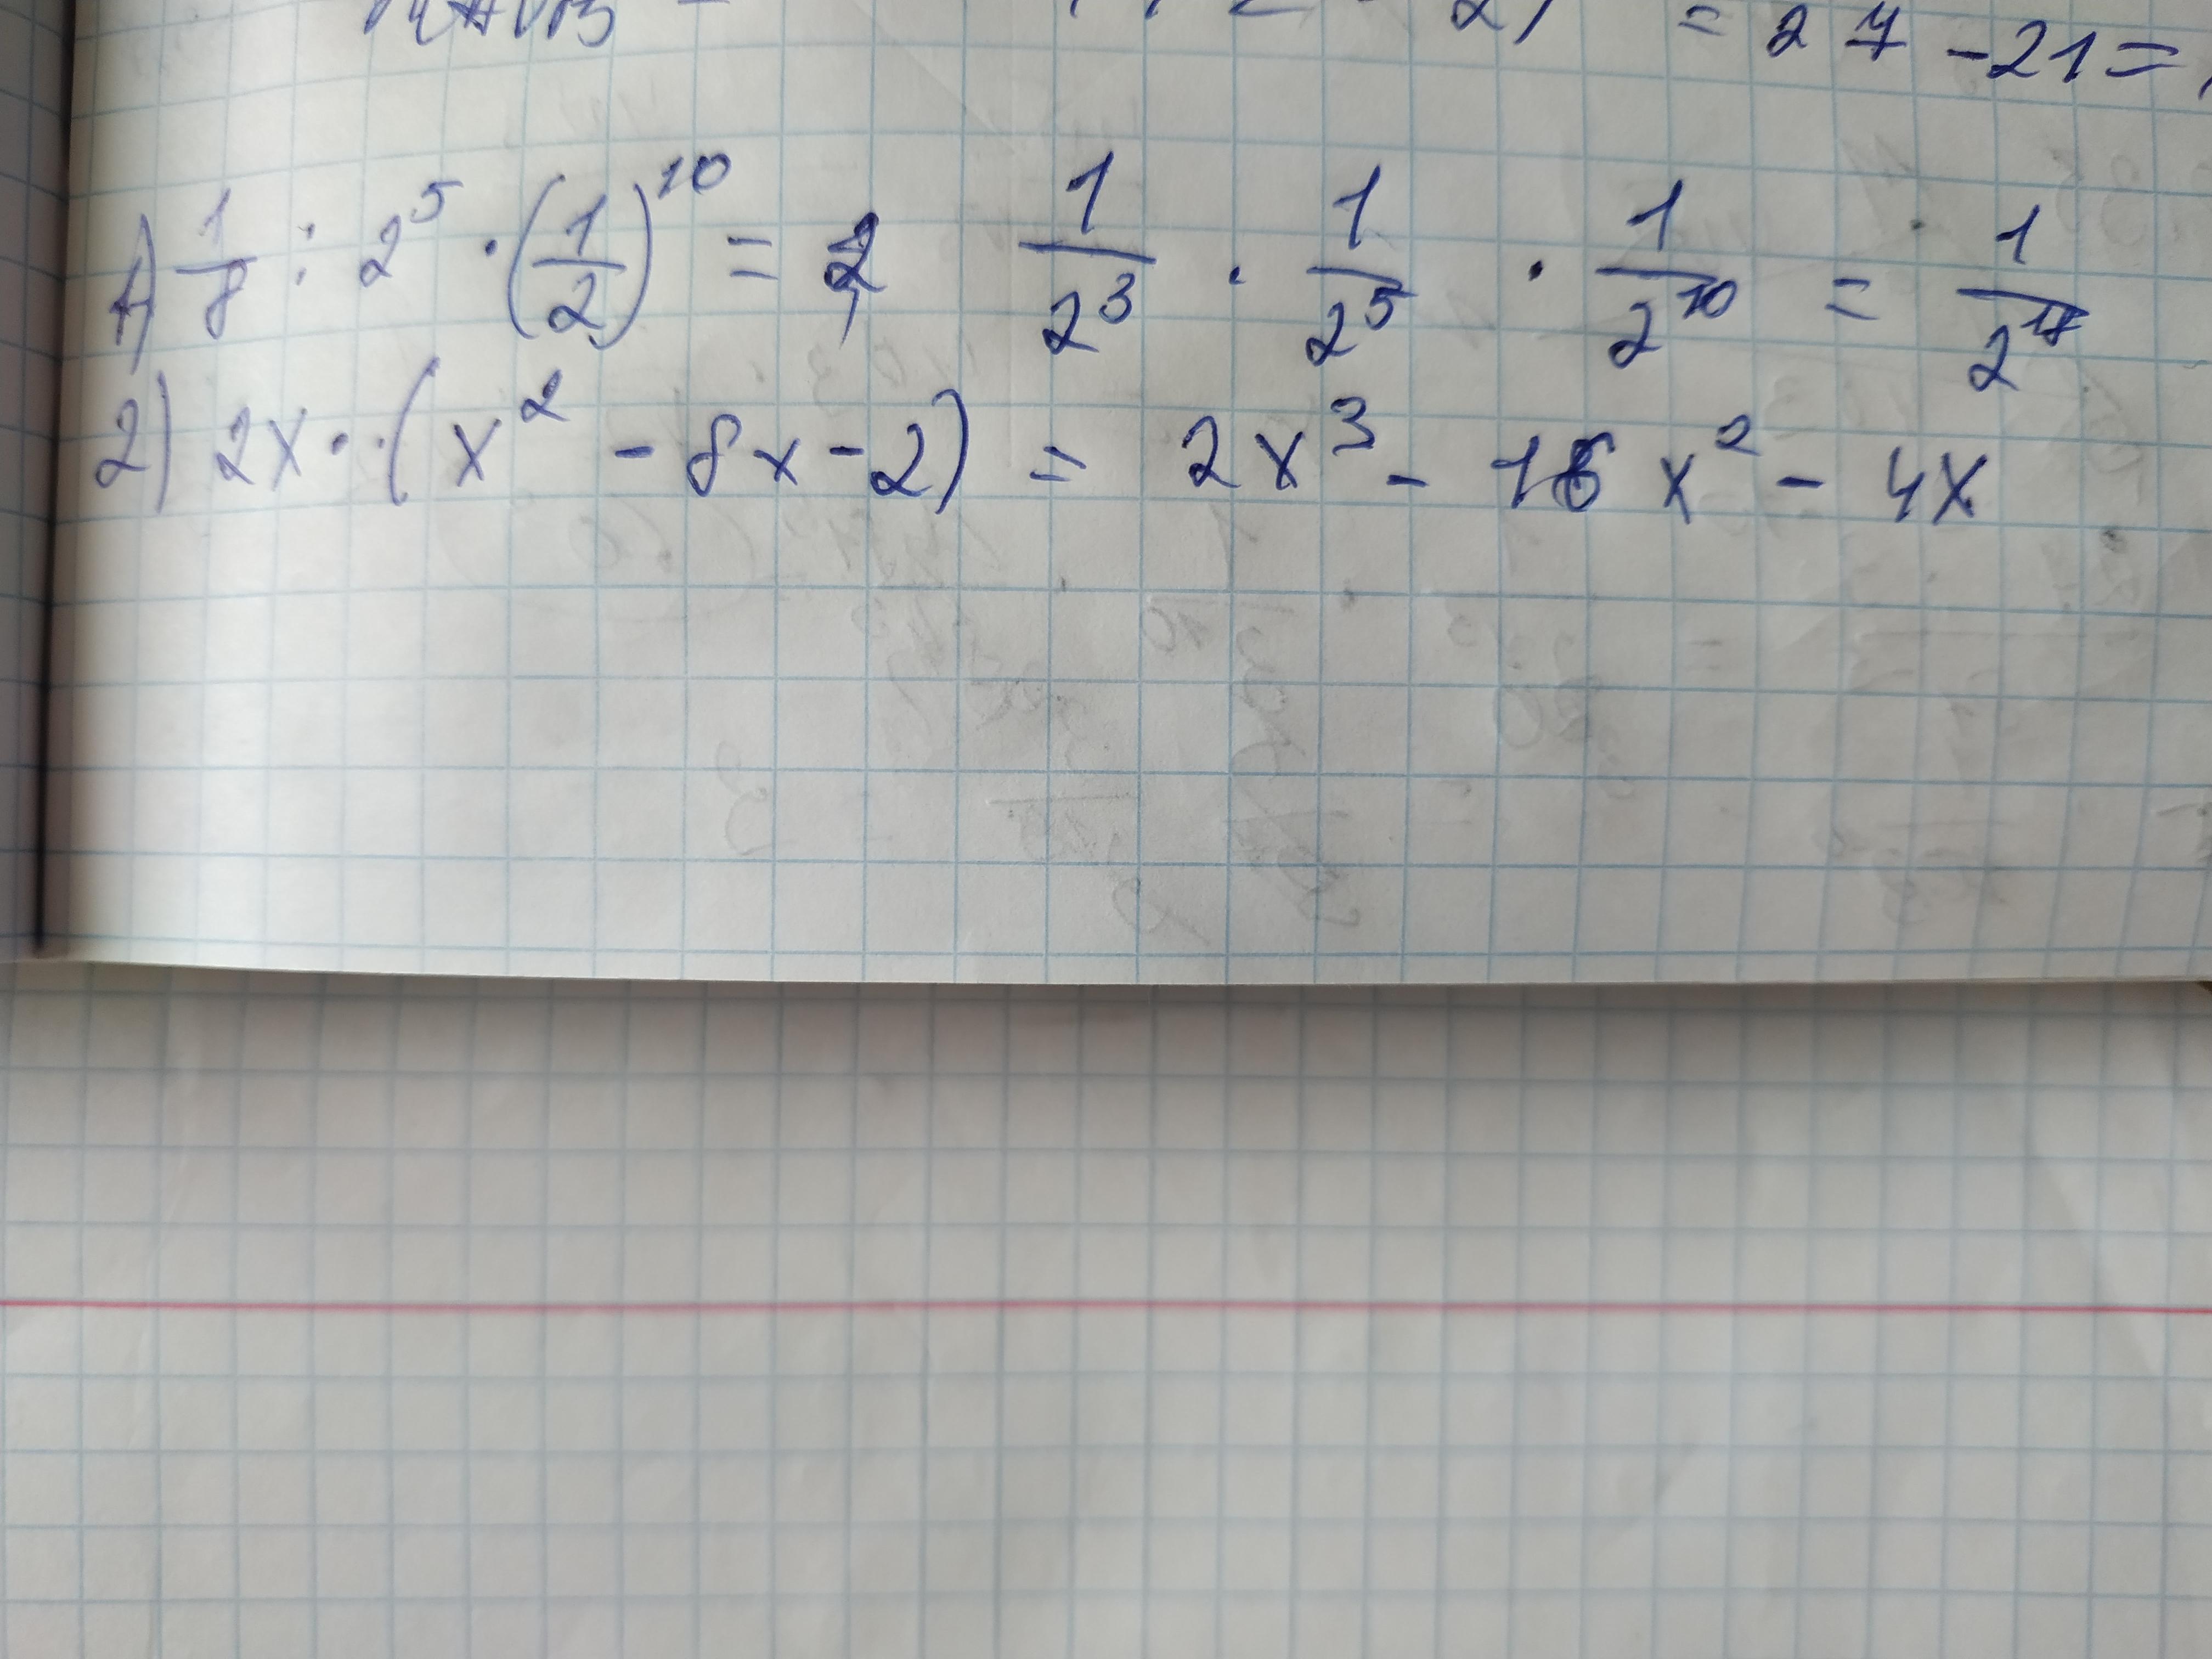 = 27 - 21 =
1) 1/8 : 2^5 · (1/2)^10 = 1/2^3 · 1/2^5 · 1/2^10 = 1/2^18
2) 2x · (x^2 - 8x - 2) = 2x^3 - 16x^2 - 4x